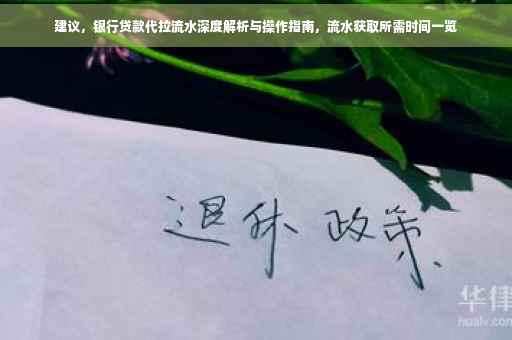 建议，银行贷款代拉流水深度解析与操作指南，流水获取所需时间一览
退休 政策
华律
hualv.com